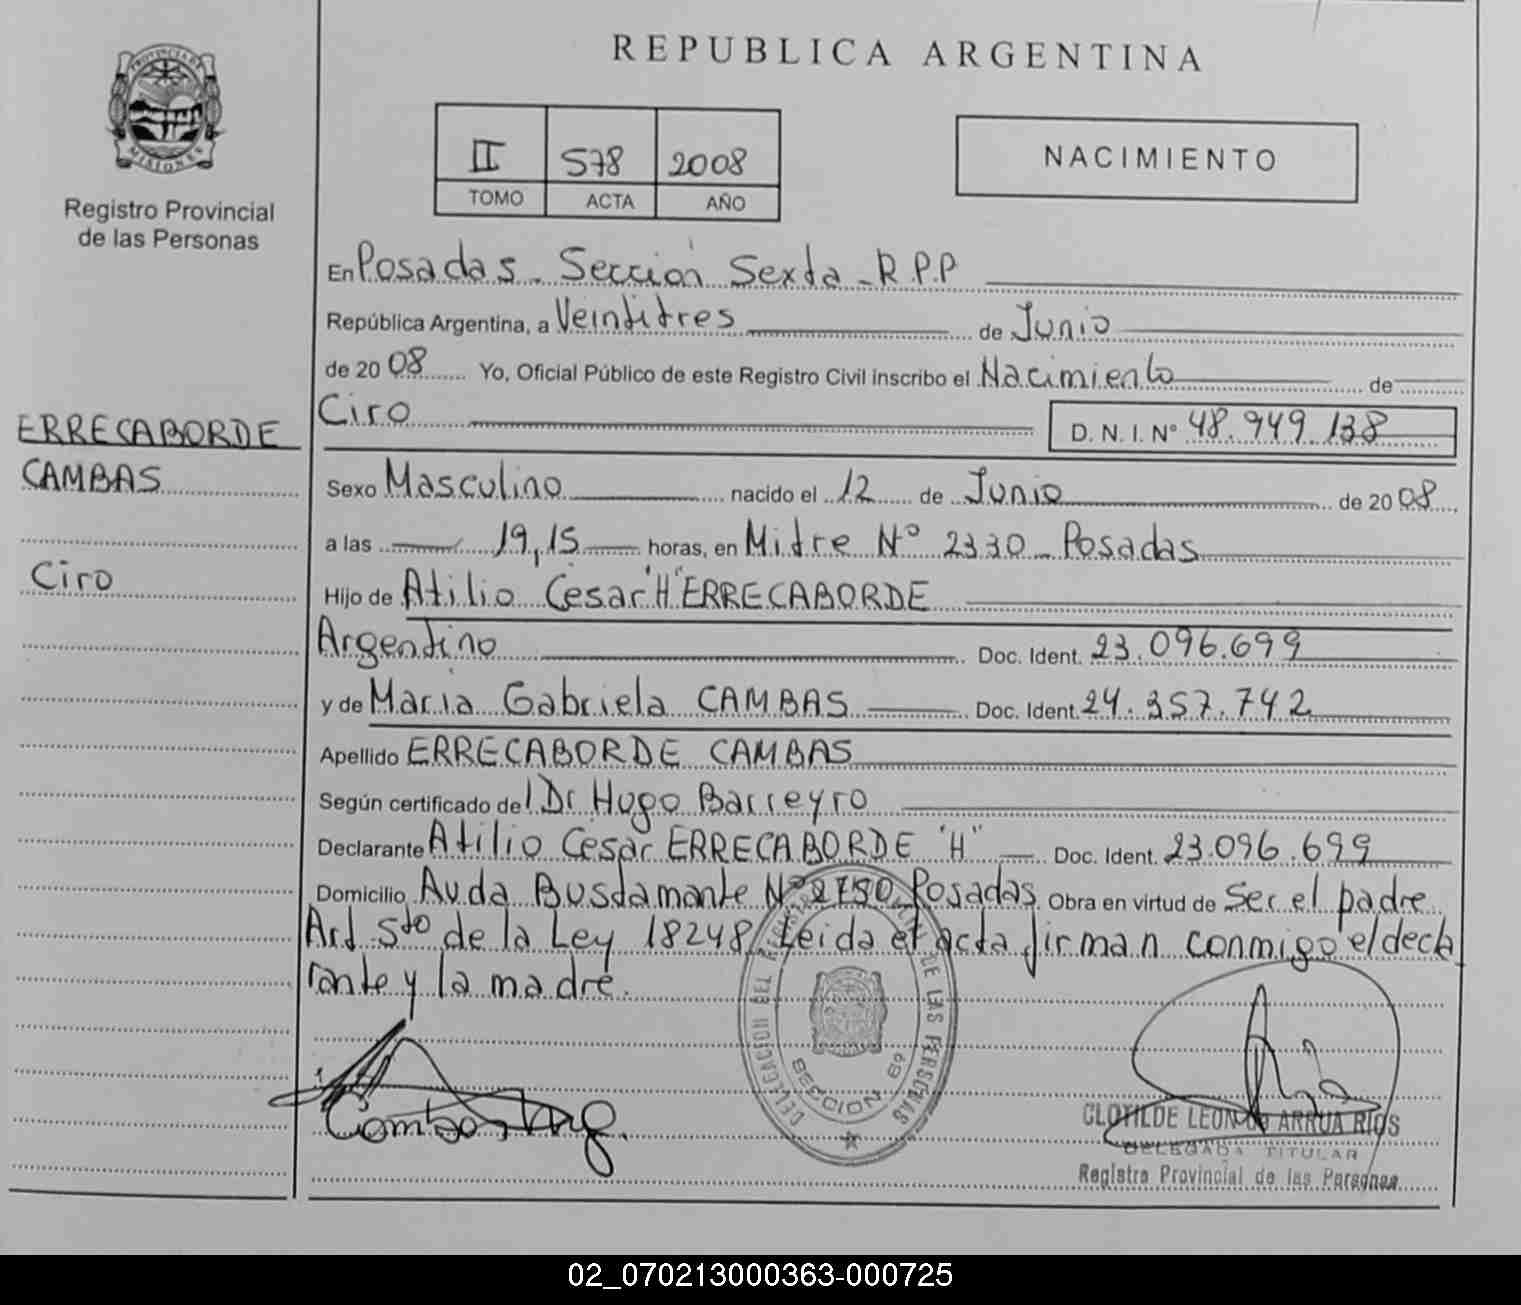 PROVINCIA DE
MISIONES
Registro Provincial
de las Personas
ERRECABORDE
CAMBAS
Ciro
REPUBLICA ARGENTINA
II 578 2008
TOMO ACTA AÑO
NACIMIENTO
En Posadas - Sección Sexta - R.P.P
República Argentina, a Veintitres de Junio
de 20 08 Yo, Oficial Público de este Registro Civil inscribo el Nacimiento de
Ciro D. N. I. Nº 48.949.138
Sexo Masculino nacido el 12 de Junio de 20 08
a las 19,15 horas, en Mitre Nº 2330 - Posadas
Hijo de Atilio César "H" ERRECABORDE
Argentino Doc. Ident. 23.096.699
y de Maria Gabriela CAMBAS Doc. Ident. 24.357.742
Apellido ERRECABORDE CAMBAS
Según certificado del Dr Hugo Barreyro
Declarante Atilio César ERRECABORDE "H" Doc. Ident. 23.096.699
Domicilio Avda Bustamante Nº 2750 Posadas Obra en virtud de Ser el padre
Art 5to de la Ley 18248 Leida el acta firman conmigo el decla
rante y la madre.
DELEGACION DEL REGISTRO DE LAS PERSONAS
SECCION 6º
CLOTILDE LEONOR ARRUA RIOS
DELEGADA TITULAR
Registro Provincial de las Personas
02_070213000363-000725